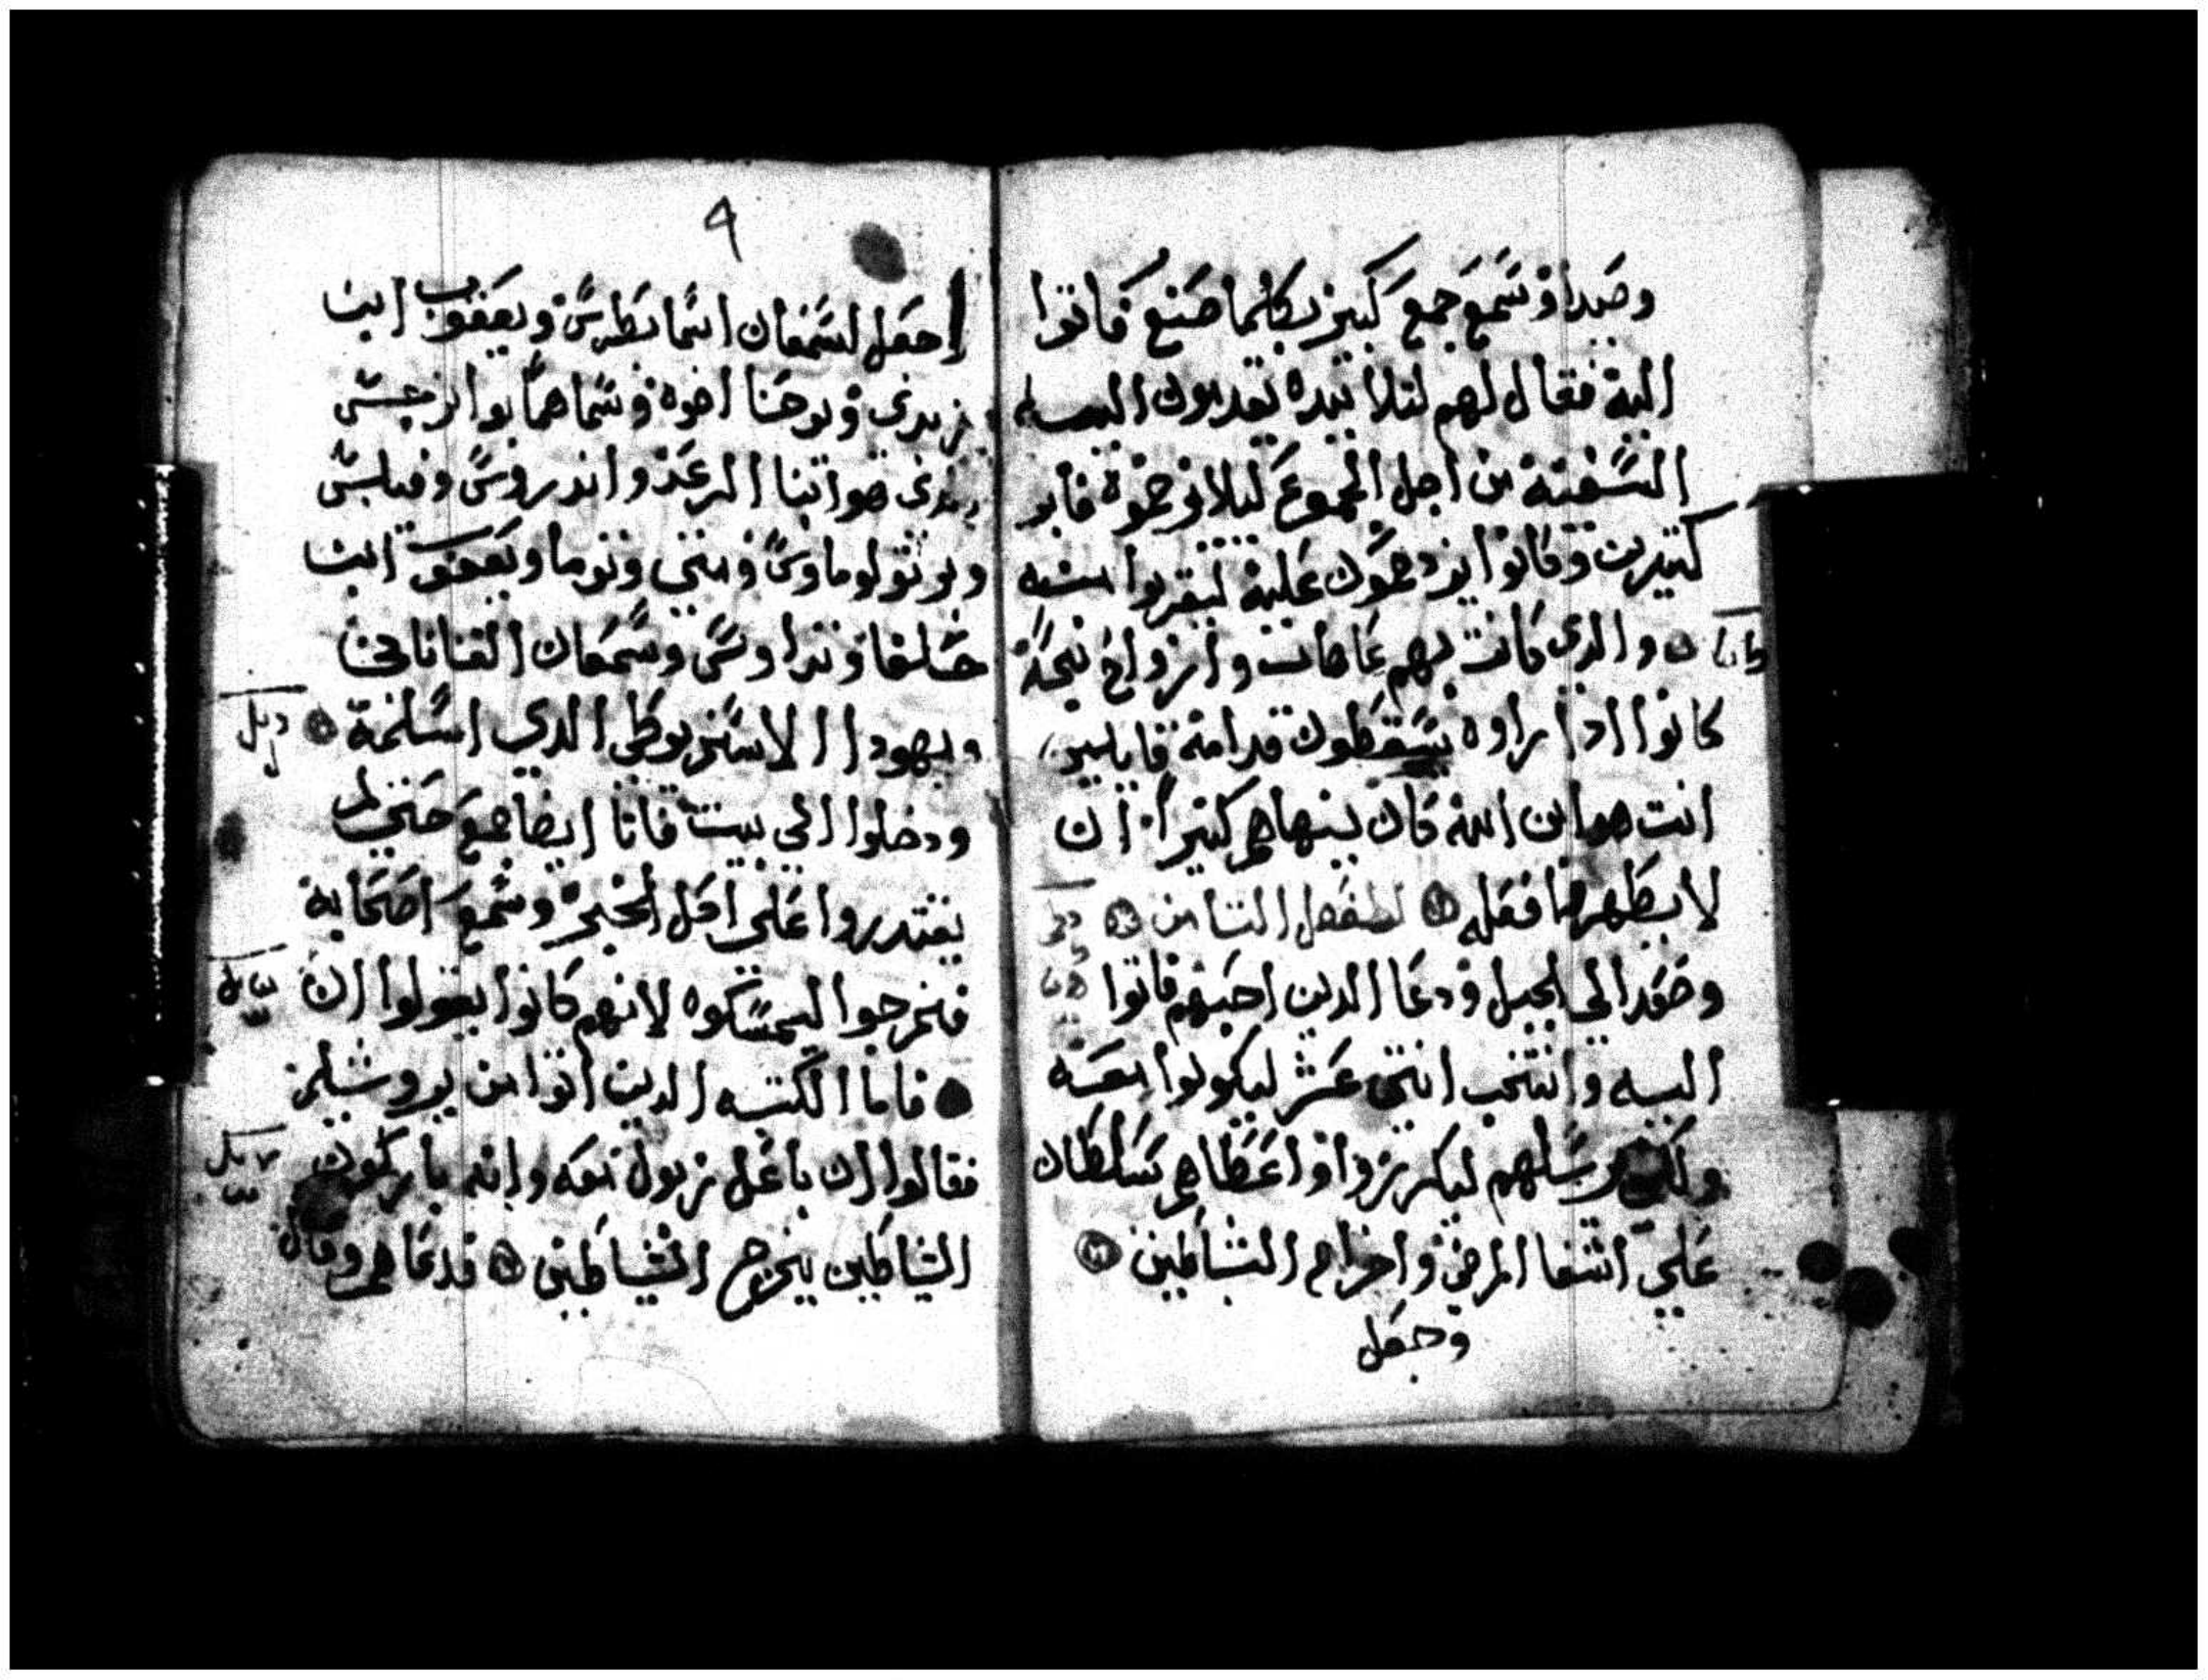 وصيدا وسمع جمع كبير بكلما صنع فاتوا
اليه فقال لهم لتلاتيده تقدمون اليه
السفينه من اجل الجموع ليلا يزحموه فابر
كتيرين وكانوا يزدحمون عليه ليقربوا منه
والدي كانت بهم عاهات وارواح نجسة
كانوا ادا راوه يسقطون قدامه قايلين
انت هو ابن الله فكان ينهاهم كتيراً ان
لا يظهروا فعله الفصل التامن
وصعد الي الجبل ودعا الدين احبهم فاتوا
اليه وانتخب اتني عشر ليكونوا معه
ولكي يرسلهم ليكرزوا واعطاهم سلطان
علي اشفا المرضي واخراج الشياطين
وجعل
٩
اجعل لسمعان اسما بطرس ويعقوب ابن
زبدي ويوحنا اخوه وسماهما بوانرجس
الدي هو ابنا الرعد واندروس وفيلبس
وبرتولوماوس ومتي وتوما ويعقوب ابن
حلفا وتداوس وسمعان القناناني
ويهودا الاسخريوطي الدي اسلمه
ودخلوا الي بيت فاتا ايضا جمع حتي لم
يقتدروا علي اكل الخبز وسمع اصحابه
فخرجوا ليمسكوه لانهم كانوا يقولوا ان
فاما الكتبه الدين اتوا من يروشليم
فقالوا ان باعل زبول معه وانه باركون
الشياطين يخرج الشياطين فدعاهم وقال